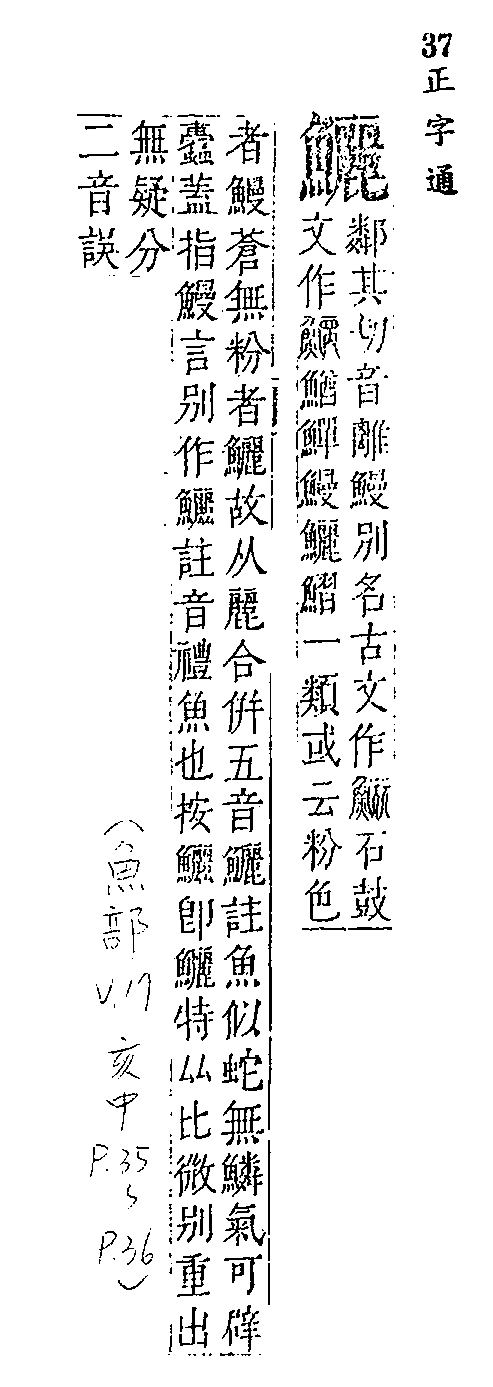 37 正字通
鱺
鄰其切音離鰻別名古文作𩽵石鼓
文作鰻鱺一類或云粉色
者鰻蒼無粉者鱺故从麗合併五音鱺註魚似蛇無鱗氣可辟
蠹蓋指鰻言別作鱺註音禮魚也按卽鱺特从比微別重出
無疑分
二音誤
(魚部
V.17
亥中
P.35
〜
P.36)